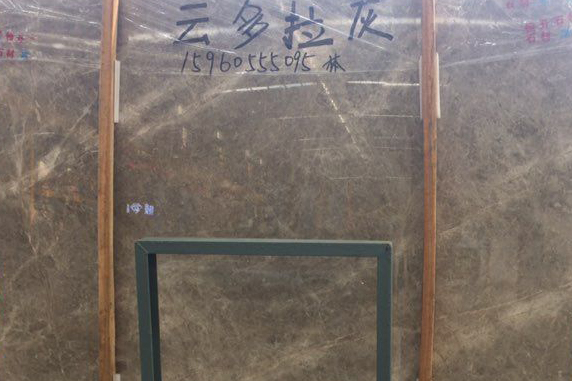 云多拉灰
15960555095 林